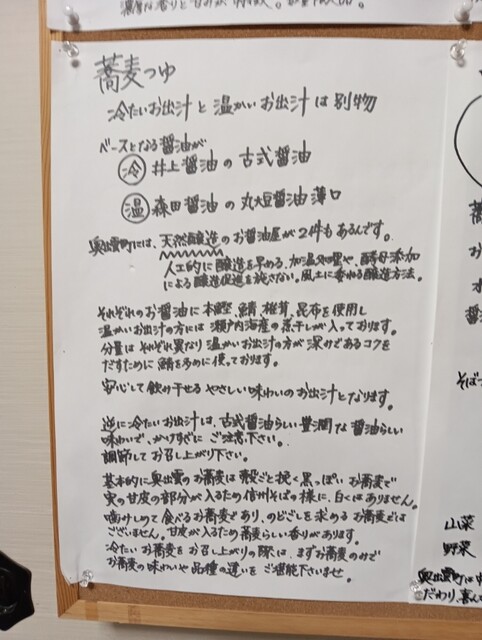 蕎麦つゆ
冷たいお出汁と温かいお出汁は別物
ベースとなる醤油が
冷 井上醤油の古式醤油
温 森田醤油の丸大豆醤油薄口
奥出雲町には、天然醸造のお醤油屋が2件もあるんです。
人工的に醸造を早める、加温処理や、酵母添加
による醸造促進を施さない。風土に委ねる醸造方法。
それぞれのお醤油に本鰹、鯖、椎茸、昆布を使用し
温かいお出汁の方には瀬戸内海産の煮干しが入っております。
分量はそれぞれ異なり温かいお出汁の方が深みであるコクを
だすために鯖を多めに使っております。
安心して飲み干せるやさしい味わいのお出汁となります。
逆に冷たいお出汁は、古式醤油らしい豊潤な醤油らしい
味わいで、かけすぎにご注意下さい。
調節してお召し上がり下さい。
基本的に奥出雲のお蕎麦は殻ごと挽く黒っぽいお蕎麦で
実の甘皮の部分が入るため信州そばの様に、白くはありません。
噛みしめて食べるお蕎麦であり、のどごしを求めるお蕎麦では
ございません。甘皮が入るため蕎麦らしい香りがあります。
冷たいお蕎麦をお召し上がりの際は、まずお蕎麦のみで
お蕎麦の味わいや品種の違いをご堪能下さいませ。
そばつ
山菜
野菜
奥出雲町は
だわり、喜ん